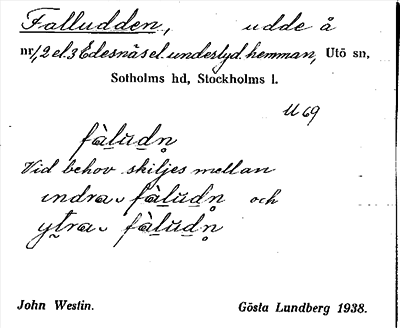 Falludden, udde å
nr 1, 2 el. 3 Edesnäs el. underlyd. hemman, Utö sn,
Sotholms hd, Stockholms l.
U 69
fàlu̱dn̥
Vid behov skiljes mellan
indra fàlu̱dn̥ och
ytra fàlu̱dn̥
John Westin. Gösta Lundberg 1938.